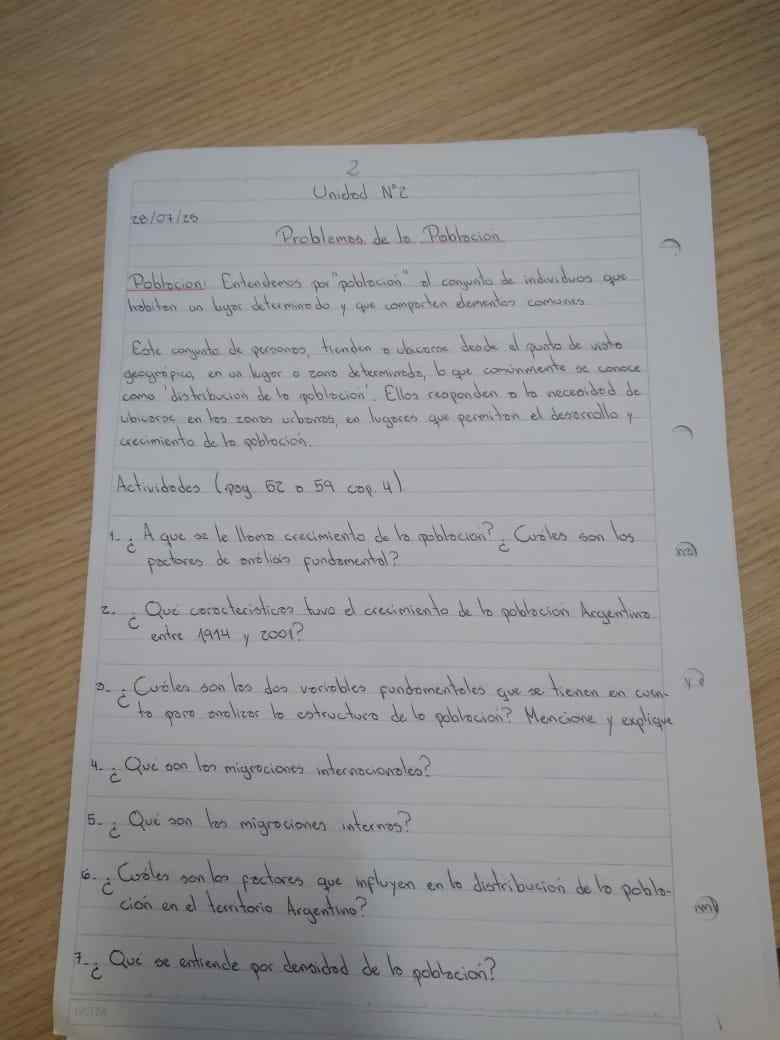 2
Unidad N°2
28/07/25
Problemas de la Poblacion
Poblacion: Entendemos por "poblacion" al conjunto de individuos que
habitan un lugar determinado y que comparten elementos comunes.
Este conjunto de personas, tienden a ubicarse desde el punto de vista
geografico, en un lugar o zona determinado, lo que comúnmente se conoce
como 'distribucion de la poblacion'. Ellos responden a la necesidad de
ubicarse, en las zonas urbanas, en lugares que permitan el desarrollo y
crecimiento de la poblacion.
Actividades (pag. 52 a 59 cap. 4)
1- ¿A que se le llama crecimiento de la poblacion? ¿Cuáles son los
factores de analisis fundamental?
2. ¿Qué caracteristicas tuvo el crecimiento de la poblacion Argentina
entre 1914 y 2001?
3- ¿Cuáles son las dos variables fundamentales que se tienen en cuen-
ta para analizar la estructura de la poblacion? Mencione y explique
4- ¿Que son las migraciones internacionales?
5- ¿Qué son las migraciones internas?
6- ¿Cuáles son los factores que influyen en la distribucion de la pobla-
ción en el territorio Argentino?
7- ¿Qué se entiende por densidad de la poblacion?